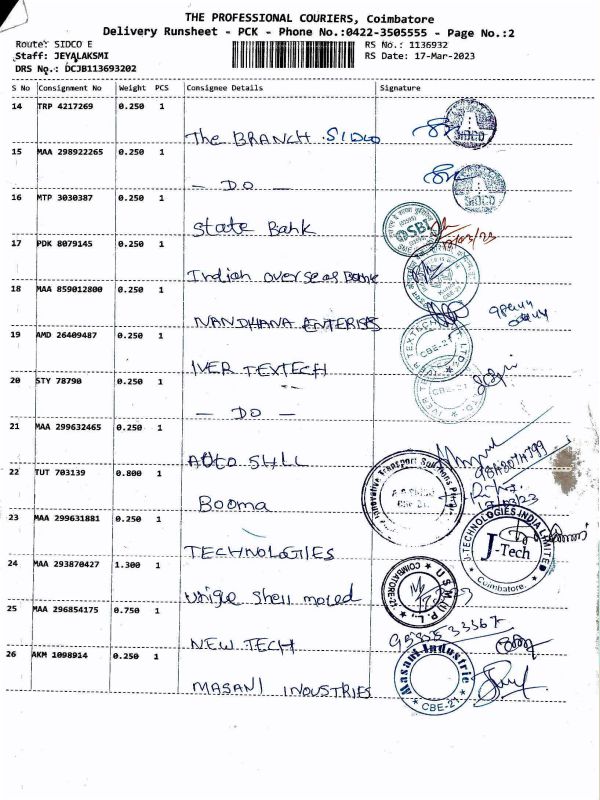 THE PROFESSIONAL COURIERS, Coimbatore
Delivery Runsheet - PCK - Phone No.:0422-3505555 - Page No.:2
Route: SIDCO E
RS No.: 1136932
Staff: JEYALAKSMI
RS Date: 17-Mar-2023
DRS No.: DCJB113693202
S No Consignment No Weight PCS Consignee Details Signature
14 TRP 4217269 0.250 1
The BRANCH SIDCO
SIDCO
15 MAA 298922265 0.250 1
- DO -
SIDCO
16 MTP 3030387 0.250 1
State Bank
SBI
17/03/23
17 PDK 8079145 0.250 1
Indian overseas Bank
18 MAA 859012800 0.250 1
NANDHANA ENTERISS
19 AMD 26409487 0.250 1
IVER TEXTECH
IVER TEXTECH
CBE-21
20 STY 78790 0.250 1
- DO -
CBE-21
21 MAA 299632465 0.250 1
AUto SHLL
22 TUT 703139 0.800 1
Booma
Innovative Transport Solutions
23 MAA 299631881 0.250 1
TECHNOLOGIES
J-TECHNOLOGIES INDIA LIMITED
J-Tech
Coimbatore.
24 MAA 293870427 1.300 1
unige shell moled
U S M (I) P. L.,
COIMBATORE-21
25 MAA 296854175 0.750 1
NEW TECH
26 AKM 1098914 0.250 1
MASANI INDUSTRIES
Masani Industrie
CBE-21